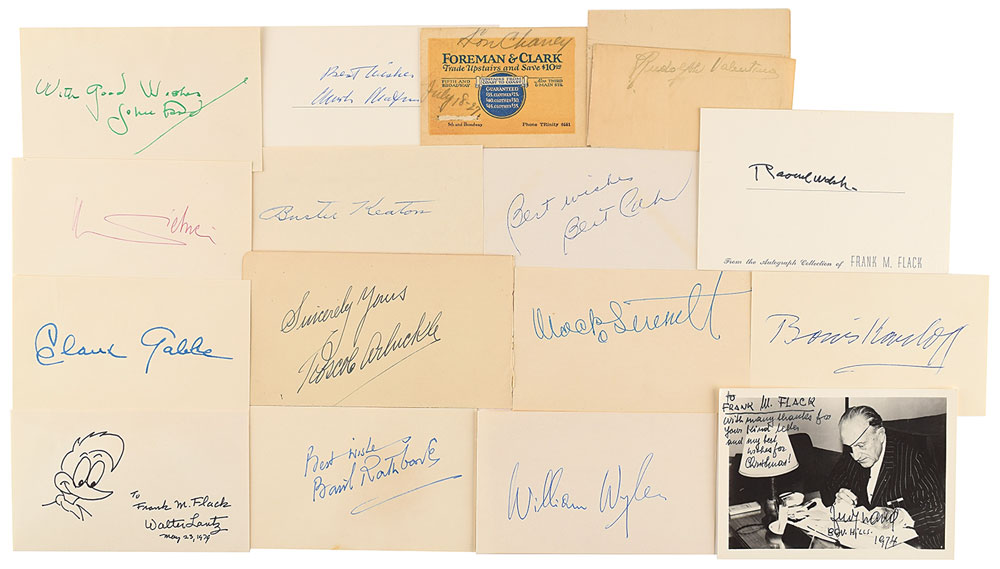 With Good Wishes
John Ford
Best Wishes
Lon Chaney
FOREMAN & CLARK
Trade Upstairs and Save $10.00
FIFTH AND
BROADWAY
UPSTAIRS FROM
COAST TO COAST
ALSO THIRD
& MAIN STS.
GUARANTEED
July 18-27
5th and Broadway
Phone TRinity
Rudolph Valentino
Raoul Walsh
From the Autograph Collection of FRANK M. FLACK
Buster Keaton
Best wishes
Bert Lahr
Clark Gable
Sincerely Yours
Roscoe Arbuckle
Mack Sennett
Boris Karloff
To
Frank M. Flack
Walter Lantz
May 23, 1974
Best wishes
Basil Rathbone
William Wyler
to
FRANK M. FLACK
With many thanks for
your kind letter
and my best
wishes for
Christmas!
BEV. HILLS.
1974